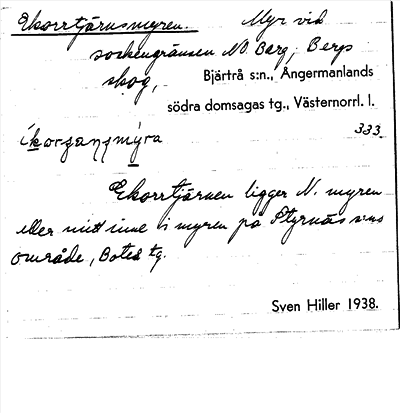 Ekorrtjärnsmyren. Myr vid
sockengränsen NO Berg, Bergs
skog,
Bjärtrå s:n., Ångermanlands
södra domsagas tg., Västernorrl. l.
333
Ekorrtjärnen ligger N. myren
eller mitt inne i myren på Styrnäs s:ns
område, Boteå tg.
Sven Hiller 1938.